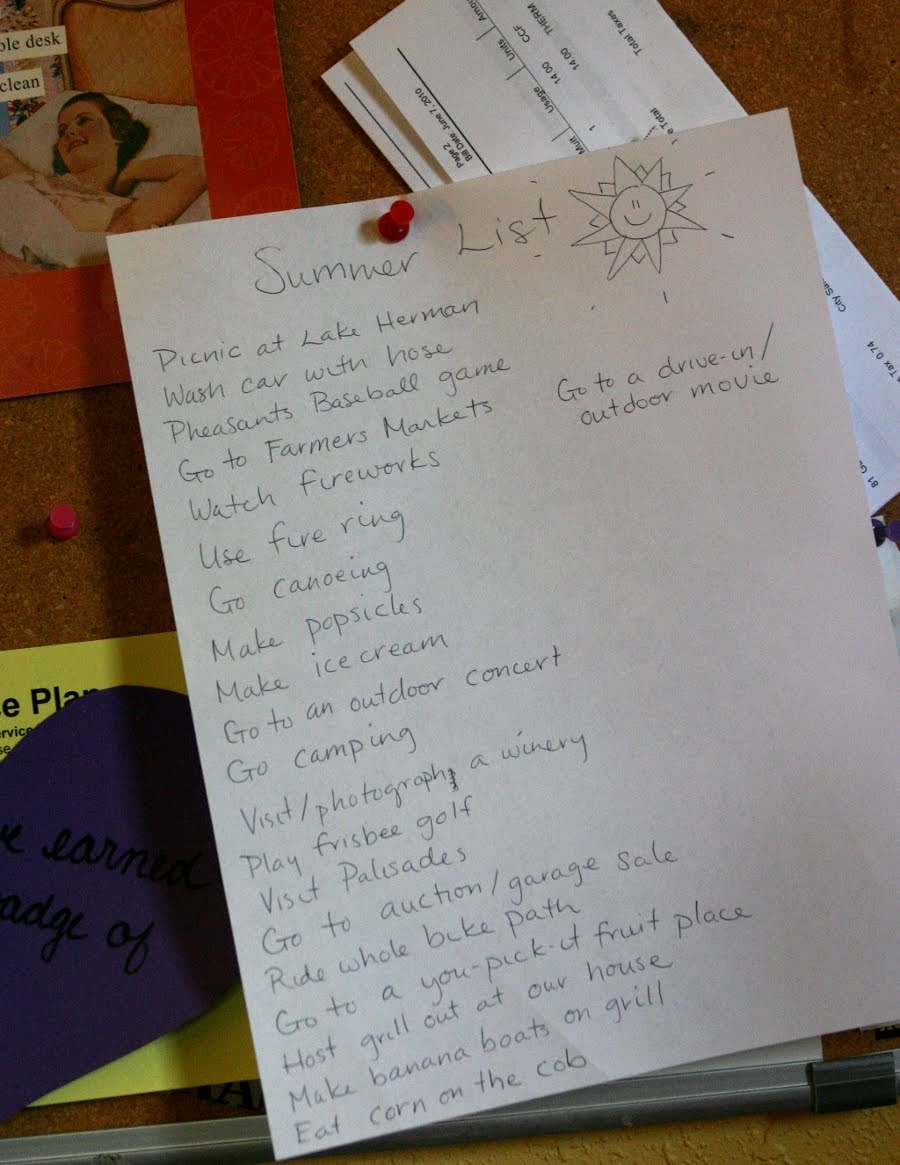 ole desk
clean
Page 2
Bill Date June 7, 2010
Mult
1
Usage
14.00
14.00
Units
CCF
THERM
Total Taxes
e Total
City Sa
s Tax 0.74
Summer List
Picnic at Lake Herman
Wash car with hose
Pheasants Baseball game
Go to Farmers Markets
Watch fireworks
Use fire ring
Go canoeing
Make popsicles
Make ice cream
Go to an outdoor concert
Go camping
Visit/photograph a winery
Play frisbee golf
Visit Palisades
Go to auction/garage sale
Ride whole bike path
Go to a you-pick-it fruit place
Host grill out at our house
Make banana boats on grill
Eat corn on the cob
Go to a drive-in/
outdoor movie
e Plan
ervice
se
e earned
adge of